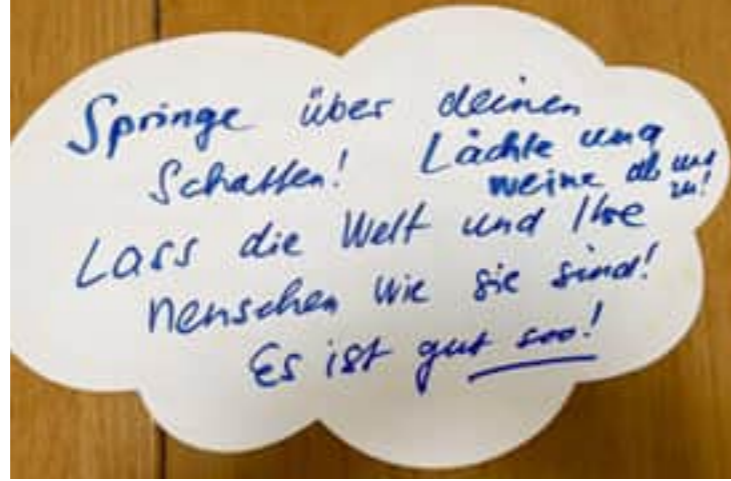 Springe über deinen
Schatten! Lächle und
weine ab und zu!
Lass die Welt und Ihre
Menschen wie sie sind!
Es ist gut soo!